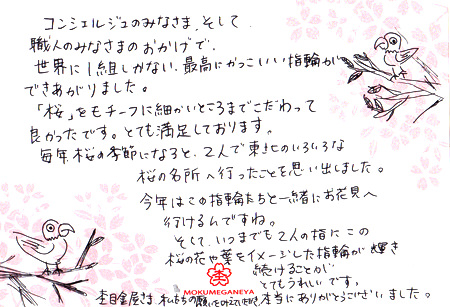 コンシェルジュのみなさま、そして
職人のみなさまのおかげで、
世界に1組しかない、最高にかっこいい指輪が
できあがりました。
「桜」をモチーフに細かいところまでこだわって
良かったです。とても満足しております。
毎年桜の季節になると、2人で東北のいろいろな
桜の名所へ行ったことを思い出しました。
今年はこの指輪たちと一緒にお花見へ
行けるんですね。
そして、いつまでも2人の指にこの
桜の花や葉をイメージした指輪が輝き
続けることが
とてもうれしいです。
MOKUMEGANEYA
杢目金屋さま、私たちの願いを叶えていただき本当にありがとうございました。